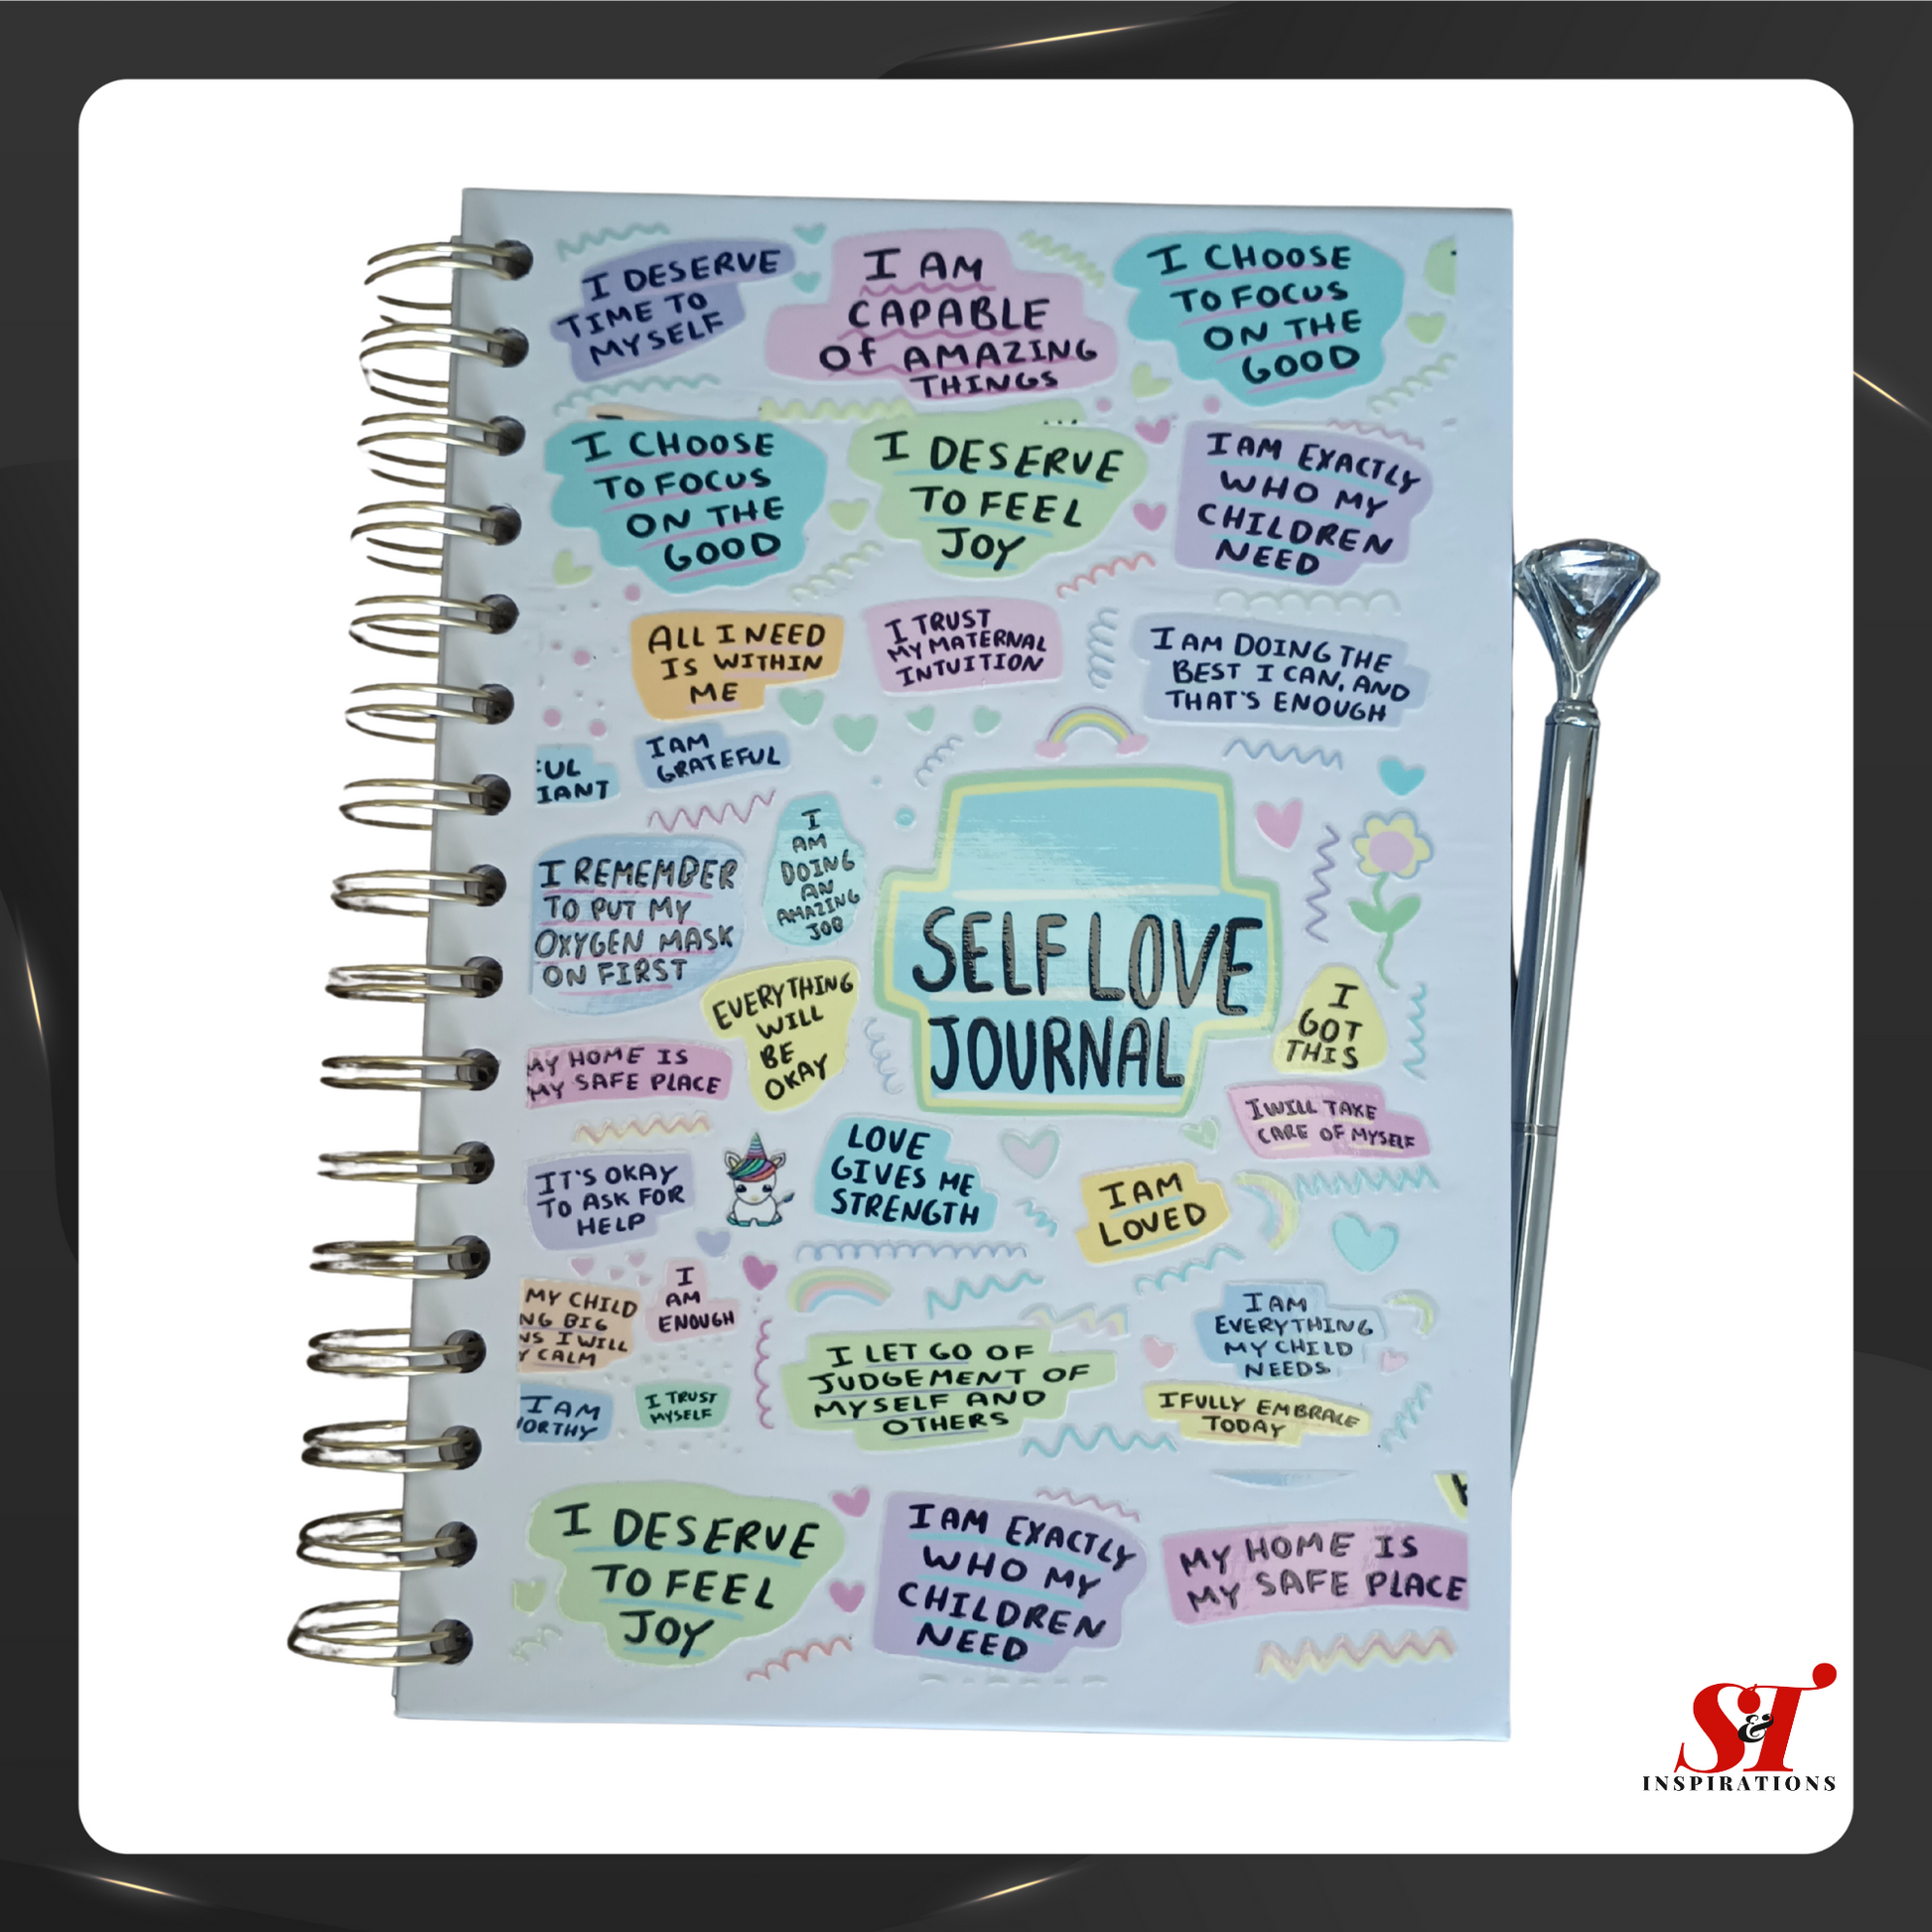 I DESERVE
TIME TO
MYSELF
I AM
CAPABLE
Of AMAZING
THINGS
I CHOOSE
TO FOCUS
ON THE
GOOD
I CHOOSE
TO FOCUS
ON THE
GOOD
I DESERVE
TO FEEL
JOY
I AM EXACTLY
WHO MY
CHILDREN
NEED
ALL I NEED
IS WITHIN
ME
I TRUST
MY MATERNAL
INTUITION
I AM DOING THE
BEST I CAN, AND
THAT'S ENOUGH
UL
IANT
I AM
GRATEFUL
I REMEMBER
TO PUT MY
OXYGEN MASK
ON FIRST
I
AM
DOING
AN
AMAZING
JOB
SELF LOVE
JOURNAL
EVERYTHING
WILL
BE
OKAY
I
GOT
THIS
MY HOME IS
MY SAFE PLACE
I WILL TAKE
CARE OF MYSELF
IT'S OKAY
TO ASK FOR
HELP
LOVE
GIVES ME
STRENGTH
I AM
LOVED
MY CHILD
NG BIG
NS I WILL
Y CALM
I
AM
ENOUGH
I AM
EVERYTHING
MY CHILD
NEEDS
I LET GO OF
JUDGEMENT OF
MYSELF AND
OTHERS
I AM
ORTHY
I TRUST
MYSELF
I FULLY EMBRACE
TODAY
I DESERVE
TO FEEL
JOY
I AM EXACTLY
WHO MY
CHILDREN
NEED
MY HOME IS
MY SAFE PLACE
S&T
INSPIRATIONS